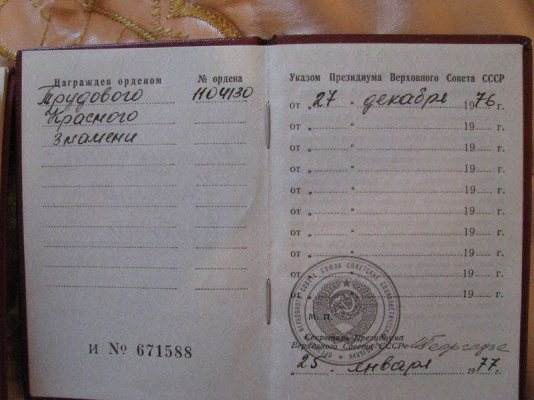 Награжден орденом № ордена
Трудового 1104130
Красного
Знамени
И № 671588
Указом Президиума Верховного Совета СССР
от „ 27 " декабря 1976 г.
от „ " 19 г.
от „ " 19 г.
от „ " 19 г.
от „ " 19 г.
от „ " 19 г.
от „ " 19 г.
от „ " 19 г.
от „ " 19 г.
от „ 19 г.
М. П.
Секретарь Президиума
Верховного Совета СССР
„ 25 " января 1977 г.